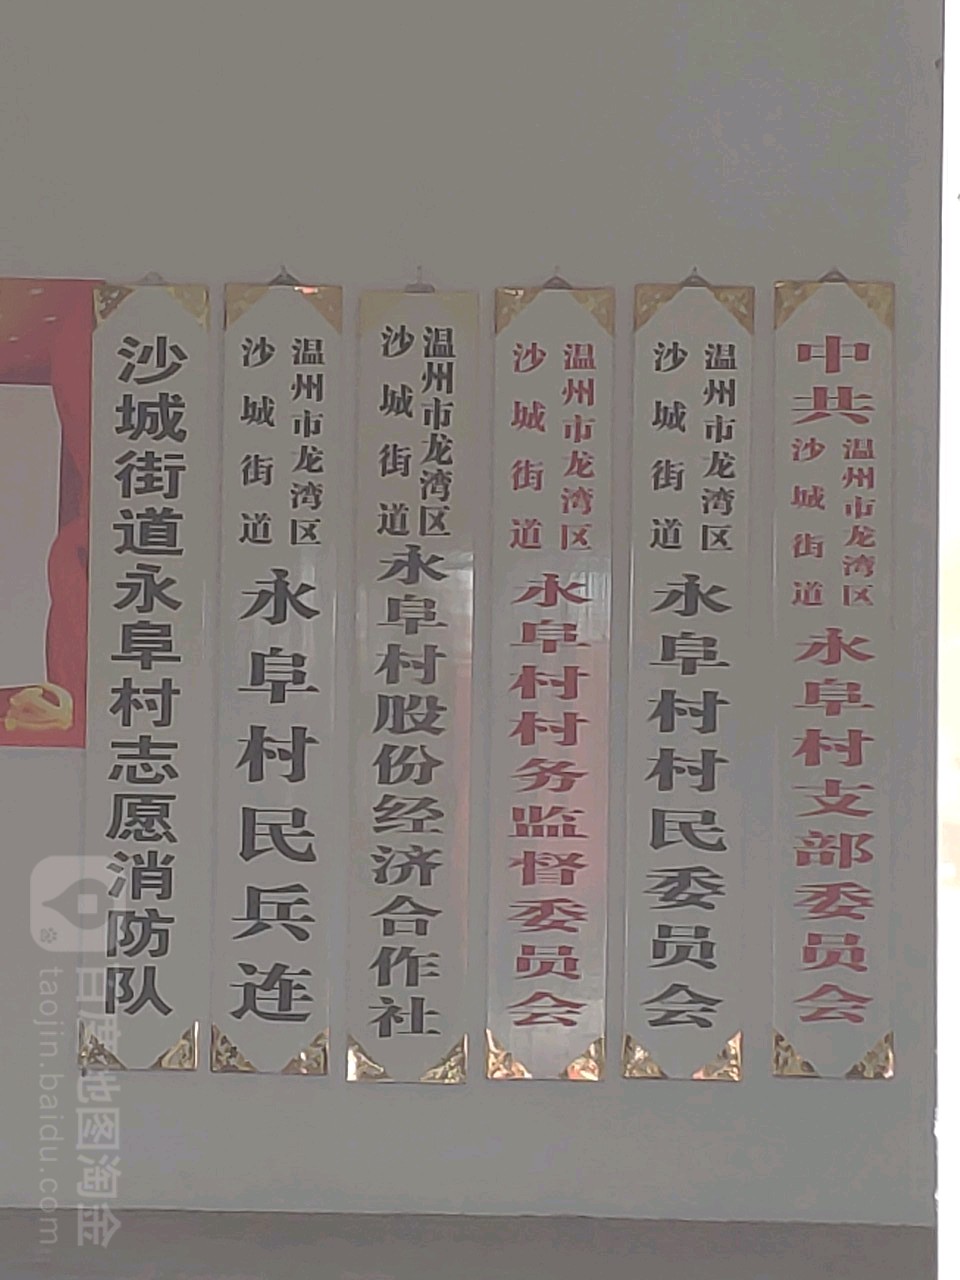 中共
温州市龙湾区
沙城街道
永阜村支部委员会
温州市龙湾区
沙城街道
永阜村村民委员会
温州市龙湾区
沙城街道
永阜村村务监督委员会
温州市龙湾区
沙城街道
永阜村股份经济合作社
温州市龙湾区
沙城街道
永阜村民兵连
沙城街道永阜村志愿消防队
百度地图淘金
taojin.baidu.com